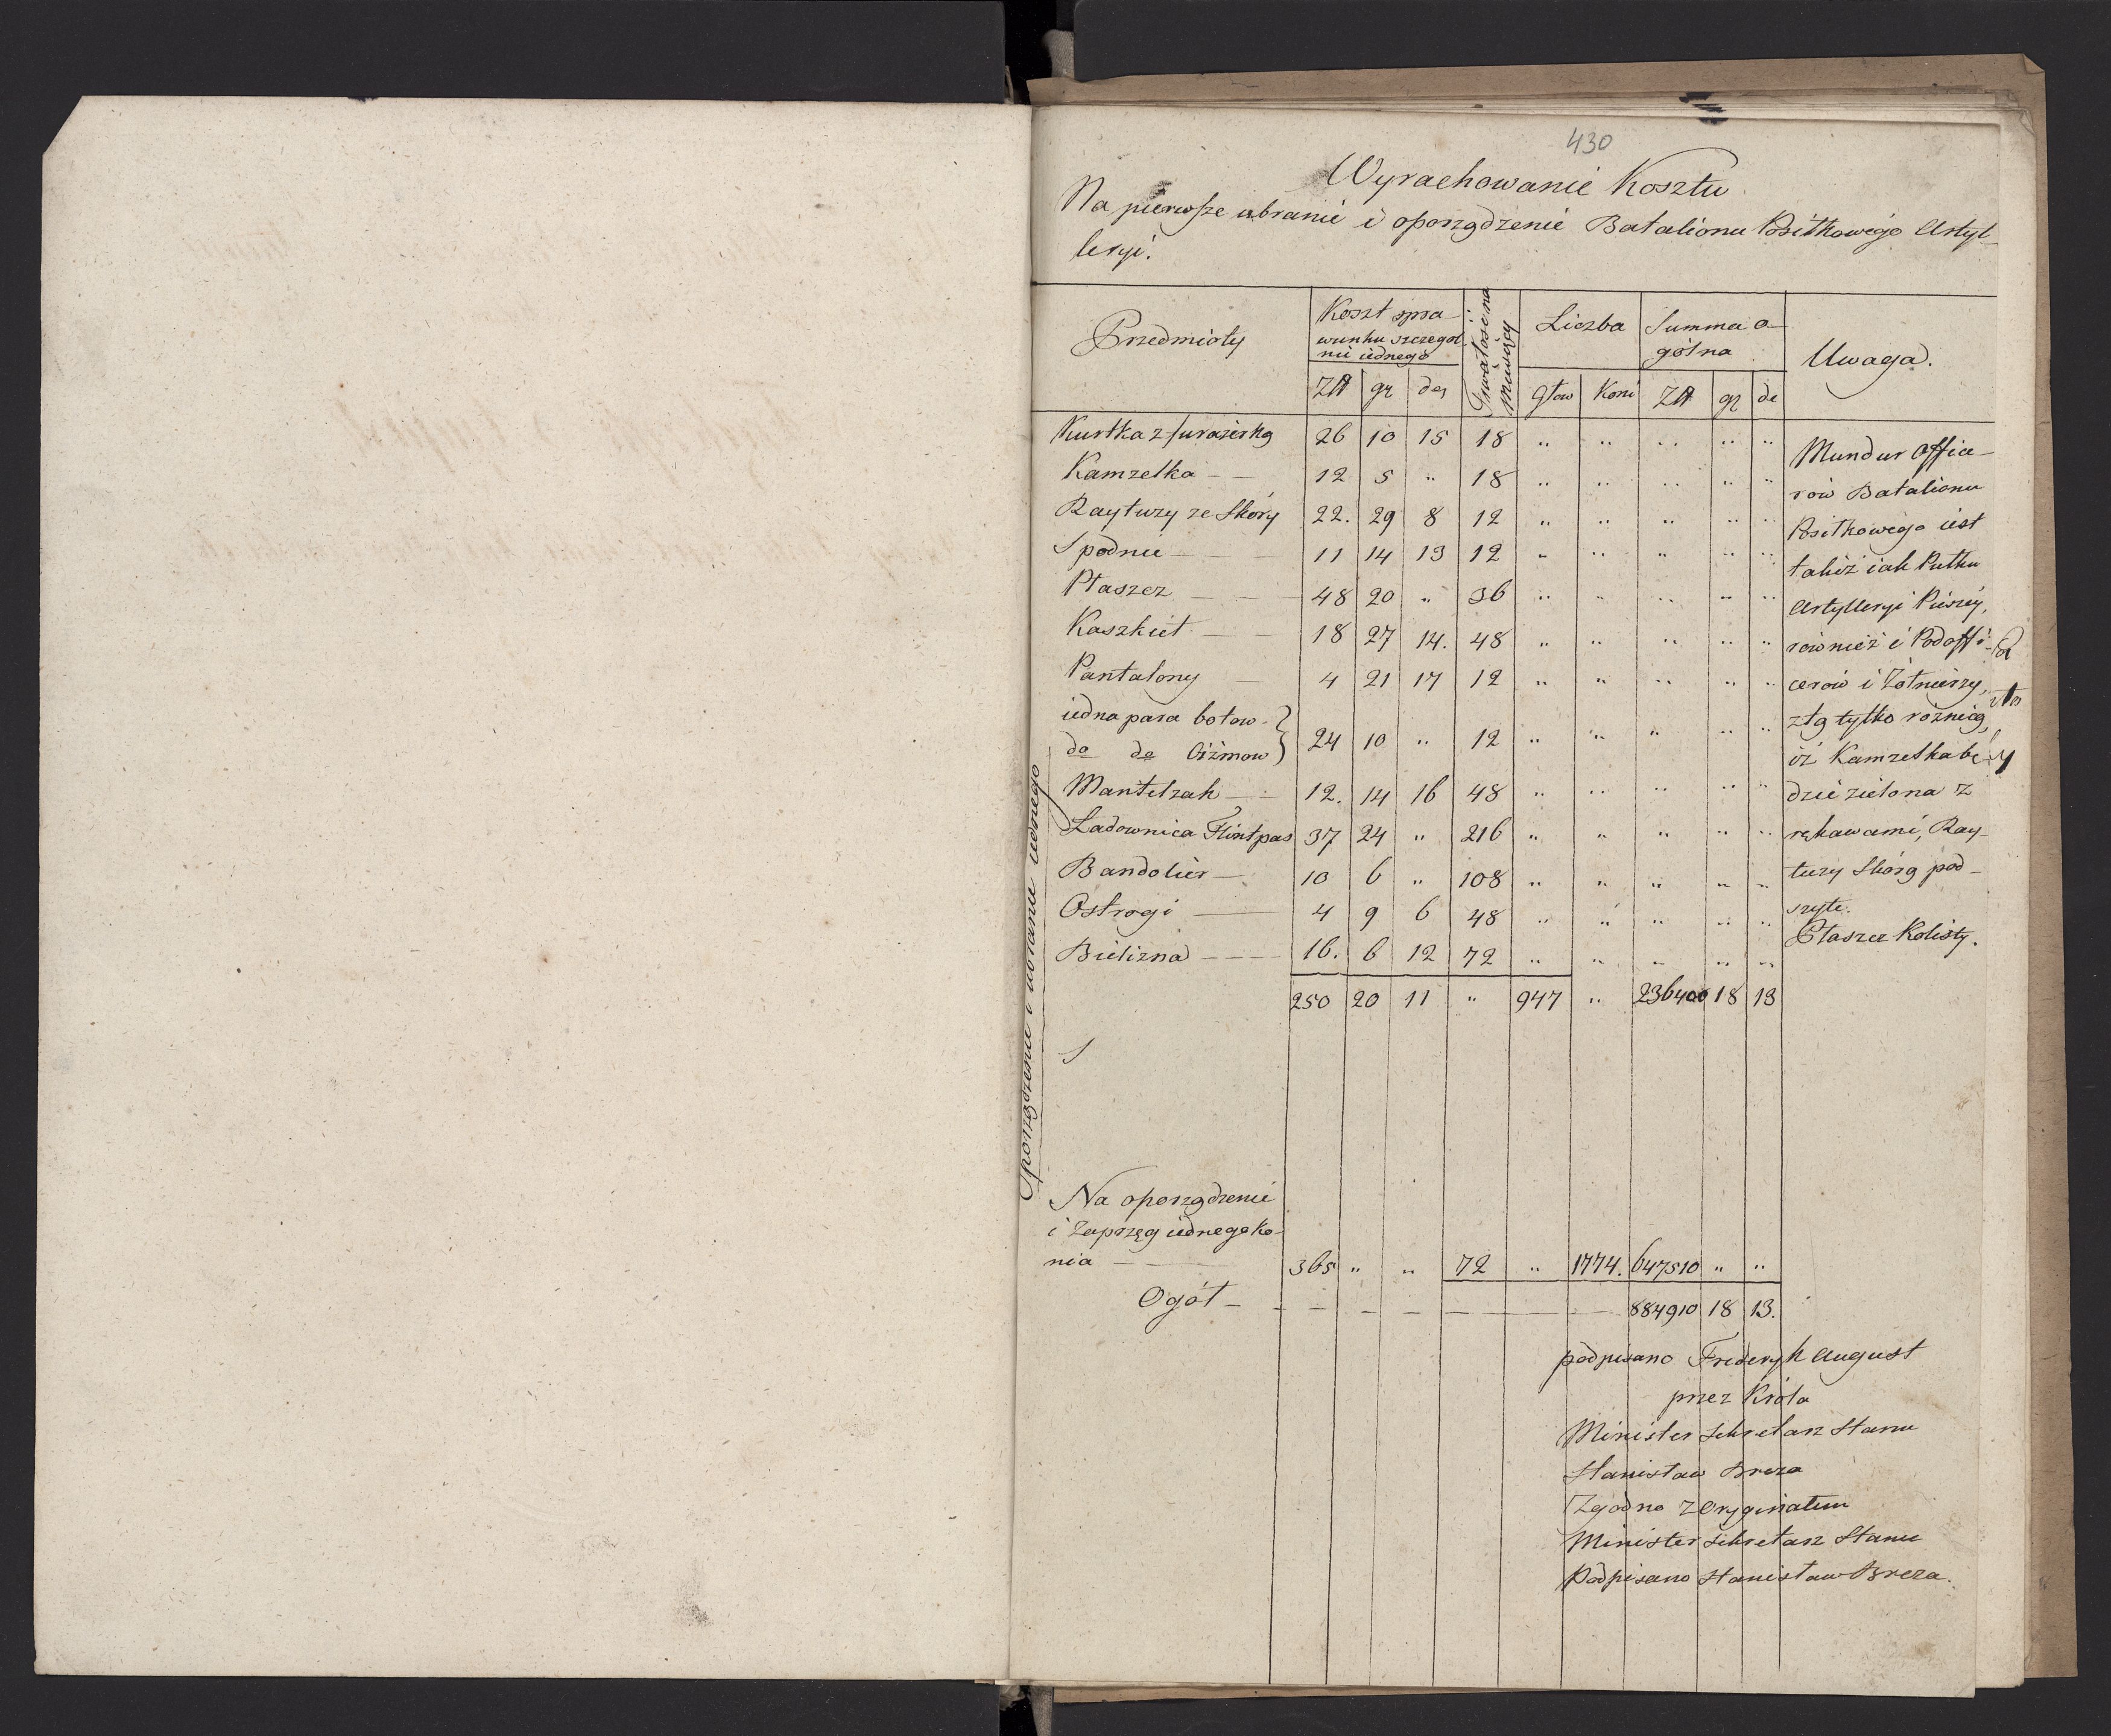 430
Wyrachowanie Kosztu
Na pierwsze ubranie i oporządzenie Batalionu Posiłkowego Artyl-
leryi.
Przedmioty | Koszt spra- wunku szczegol nie iednego | Trwałość na miesięcy | Liczba | Summa o- gólna | Uwaga.
Zł | gr | den | Głow | Koni | Zł | gr | de
Oporządzenie i ubranie iednego
Kurtka z furażerką | 26 | 10 | 15 | 18 | " | " | " | " | "
Kamzelka — — | 12 | 5 | " | 18 | " | " | " | " | "
Raytuzy ze Skóry | 22. | 29 | 8 | 12 | " | " | " | " | "
Spodnie — — — | 11 | 14 | 13 | 12 | " | " | " | " | "
Płaszcz — — — | 48 | 20 | " | 36 | " | " | " | " | "
Kaszkiet — — | 18 | 27 | 14. | 48 | " | " | " | " | "
Pantalony — | 4 | 21 | 17 | 12 | " | " | " | " | "
iedna para botow -}
do do Ciżmow} | 24 | 10 | " | 12 | " | " | " | " | "
Mantelzak — — | 12. | 14 | 16 | 48 | " | " | " | " | "
Ładownica Flintpas | 37 | 24 | " | 216 | " | " | " | " | "
Bandolier — | 10 | 6 | " | 108 | " | " | " | " | "
Ostrogi — | 4 | 9 | 6 | 48 | " | " | " | " | "
Bielizna — — — | 16. | 6 | 12 | 72 | " | " | " | " | "
250 | 20 | 11 | " | 947 | " | 236400 | 18 | 13
Mundur Offica-
row Batalionu
Posiłkowego iest
takiż iak Pułku
Artylleryi Pieszey,
również i Podoffi-
cerow i Żołnierzy,
z tą tylko rożnicą,
iż Kamzelka bę-
dzie zielona z
rękawami, Ray-
tuzy Skórą pod-
szyte.
Płaszcz Kolisty.
Na oporządzenie
i Zaprzęg iednego ko-
nia — — | 365 | " | " | 72 | " | 1774. | 647510 | " | "
Ogół — — — — — — — — | 884910 | 18 | 13.
podpisano Fryderyk August
przez Króla
Minister Sekretarz Stanu
Stanisław Breza
Zgodno z Oryginałem
Minister Sekretarz Stanu
Podpisano Stanisław Breza.